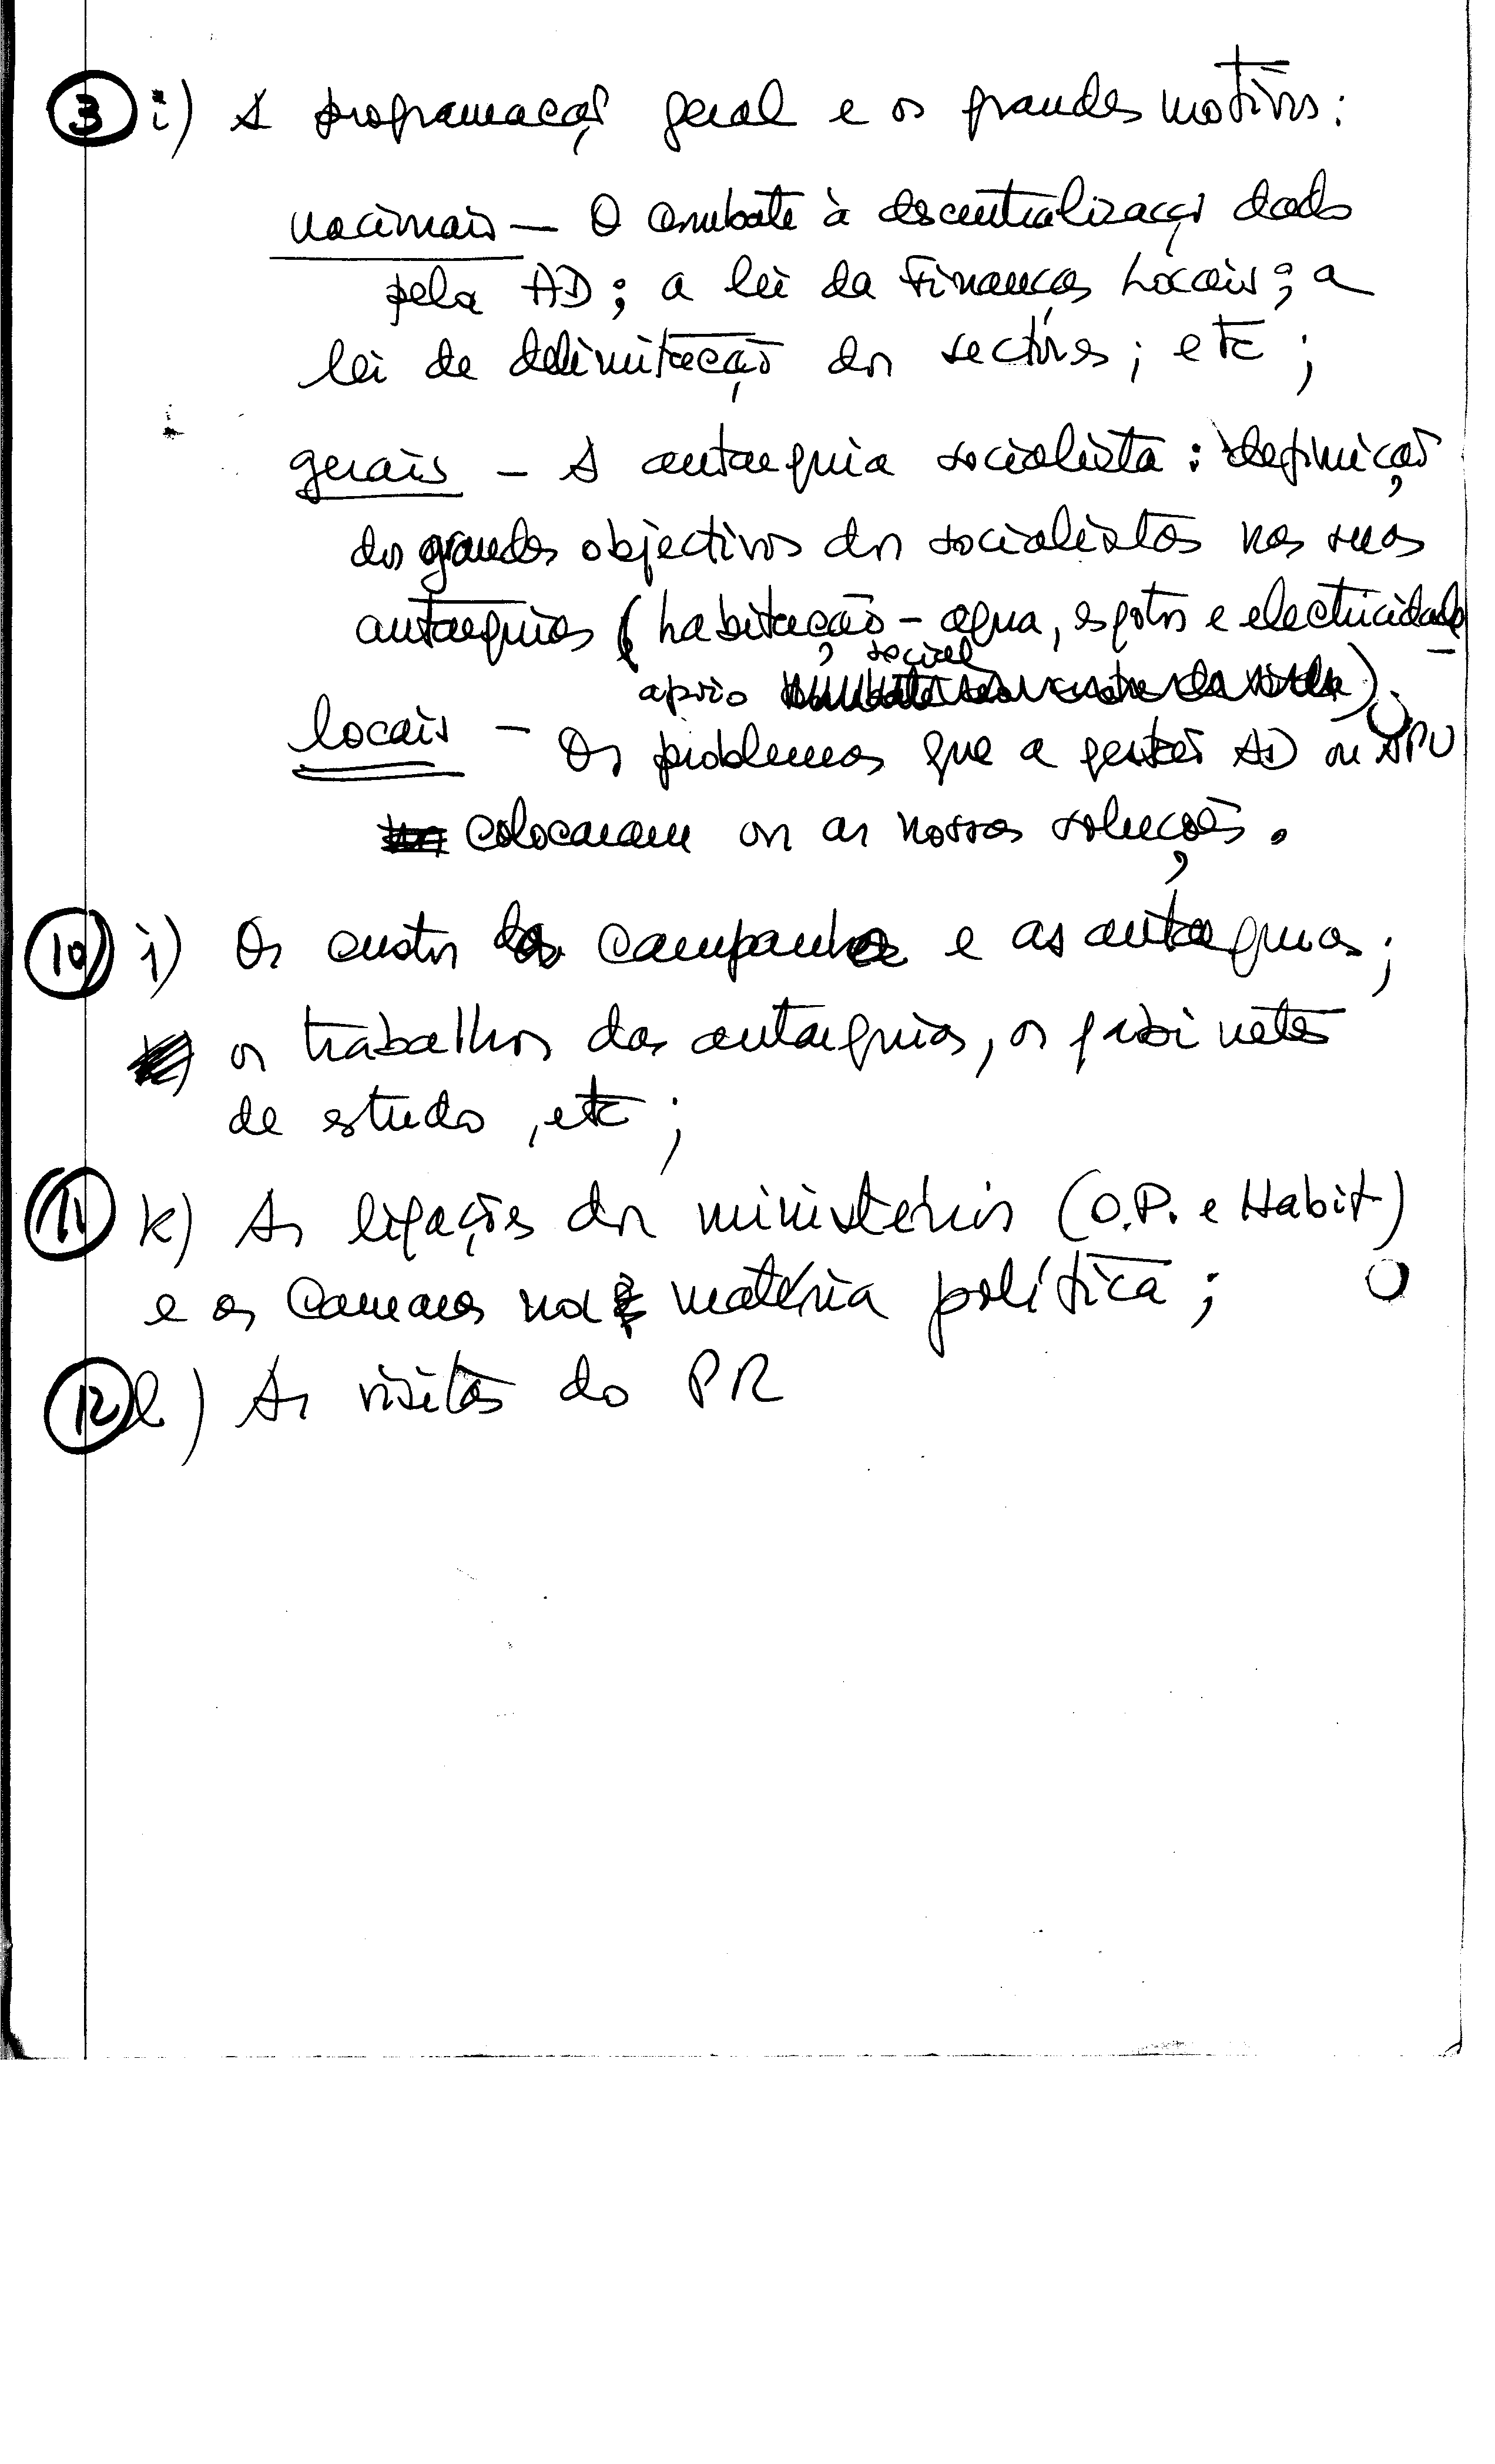 3 i) A programação geral e os grandes motivos:
nacionais — O combate à descentralização dado
pela AD; a lei da Finanças Locais; a
lei de delimitação dos sectores; etc;
gerais — A autarquia socialista: definição
dos grandes objectivos dos socialistas nas suas
autarquias (habitação – agua, esgotos e electricidade –
social
apoio ).
locais — Os problemas que a gestão AD ou APU
colocaram ou as nossas soluções.
10 j) Os custos da campanha e as autarquias;
os trabalhos das autarquias, os gabinetes
de estudo, etc;
11 k) As ligações dos ministérios (O.P. e Habit)
e as Camaras na matéria política;
12 l) As visitas do PR